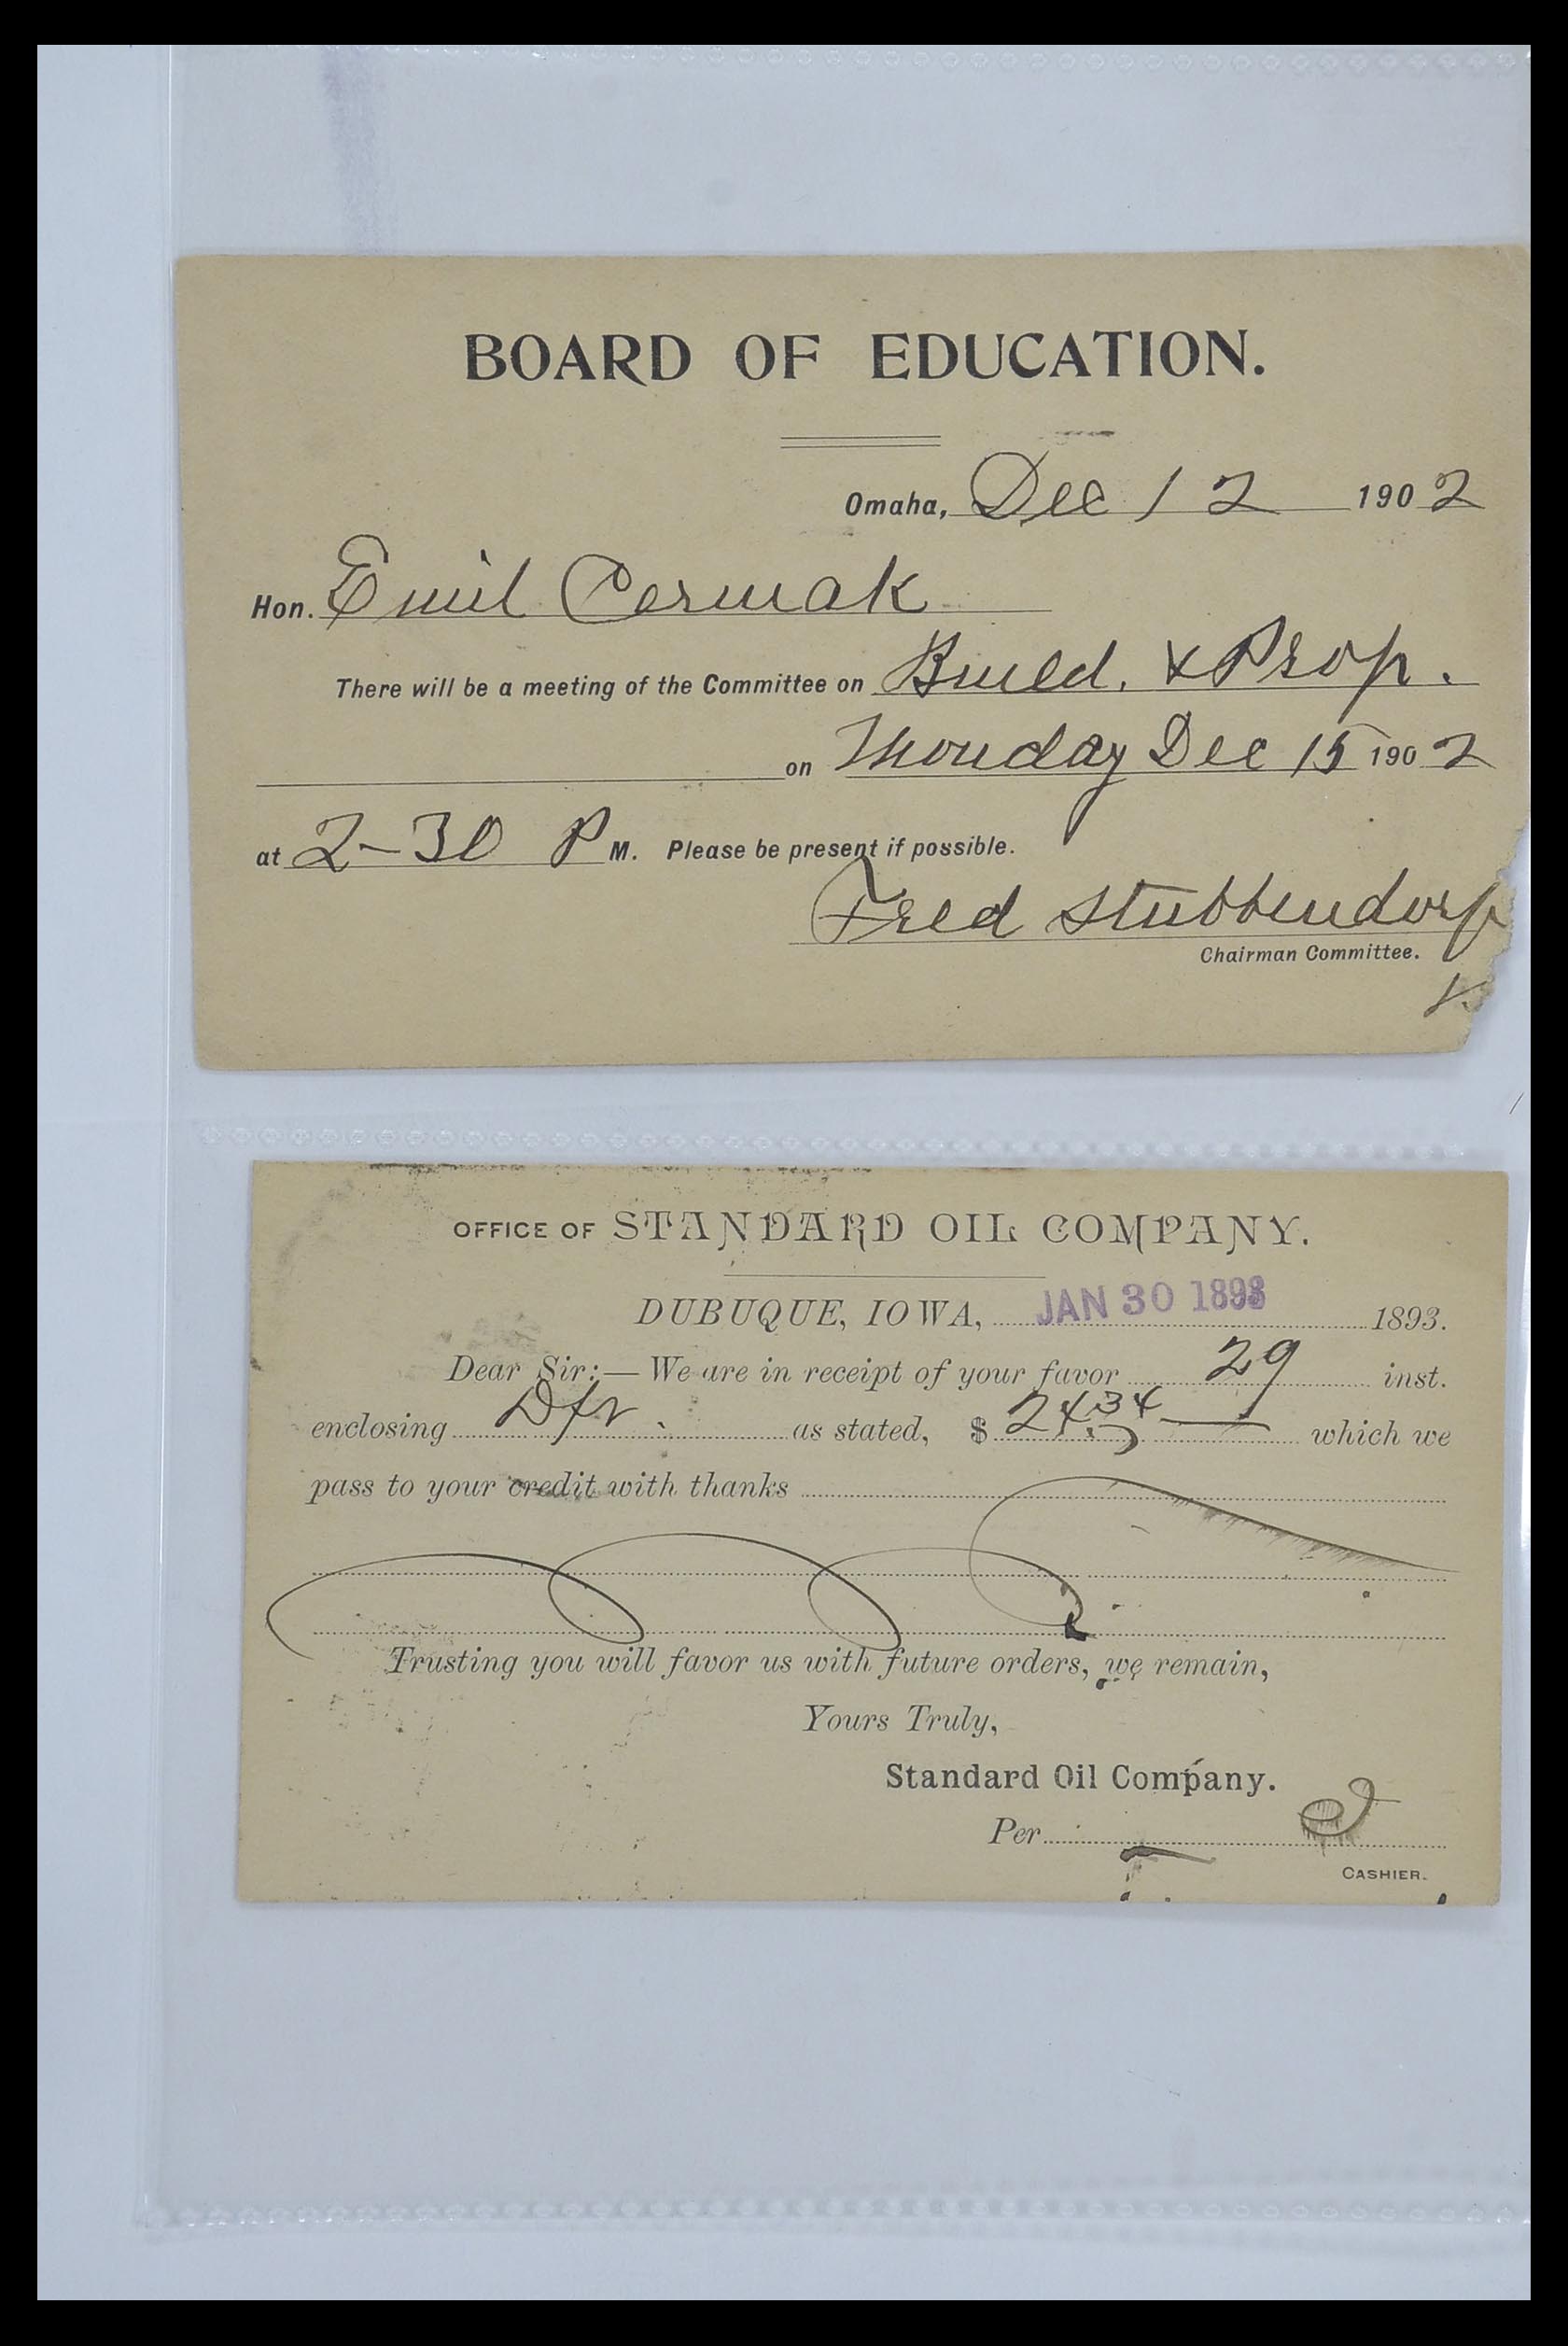 BOARD OF EDUCATION.
Omaha, Dec 12 1902
Hon. Emil Cermak
There will be a meeting of the Committee on Build. & Prop.
on Monday Dec 15 1902
at 2-30 P M. Please be present if possible.
Fred Stubbendorf
Chairman Committee.
OFFICE OF STANDARD OIL COMPANY.
DUBUQUE, IOWA, JAN 30 1893 1893.
Dear Sir:— We are in receipt of your favor 29 inst.
enclosing Dft. as stated, $ 24.34 which we
pass to your credit with thanks
Trusting you will favor us with future orders, we remain,
Yours Truly,
Standard Oil Company.
Per
CASHIER.